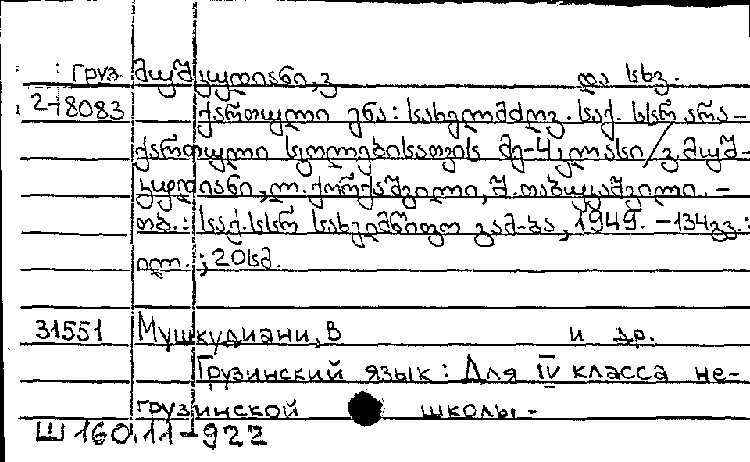 Груз. მუშკუდიანი, ვ და სხვ.
2-18083 ქართული ენა: სახელმძღვ. საქ. სსრ არა-
ქართული სკოლებისათვის მე-4 კლასი / ვ. მუშ-
კუდიანი, ლ. ქორქაშვილი, შ. თაბუკაშვილი. -
თბ.: საქ. სსრ სახელმწიფო გამ-ბა, 1949. - 134 გვ.:
ილ.; 20 სმ.
31551 Мушкудиани, В и др.
Грузинский язык: Для IV класса не-
грузинской школы-
Ш 160.11-922